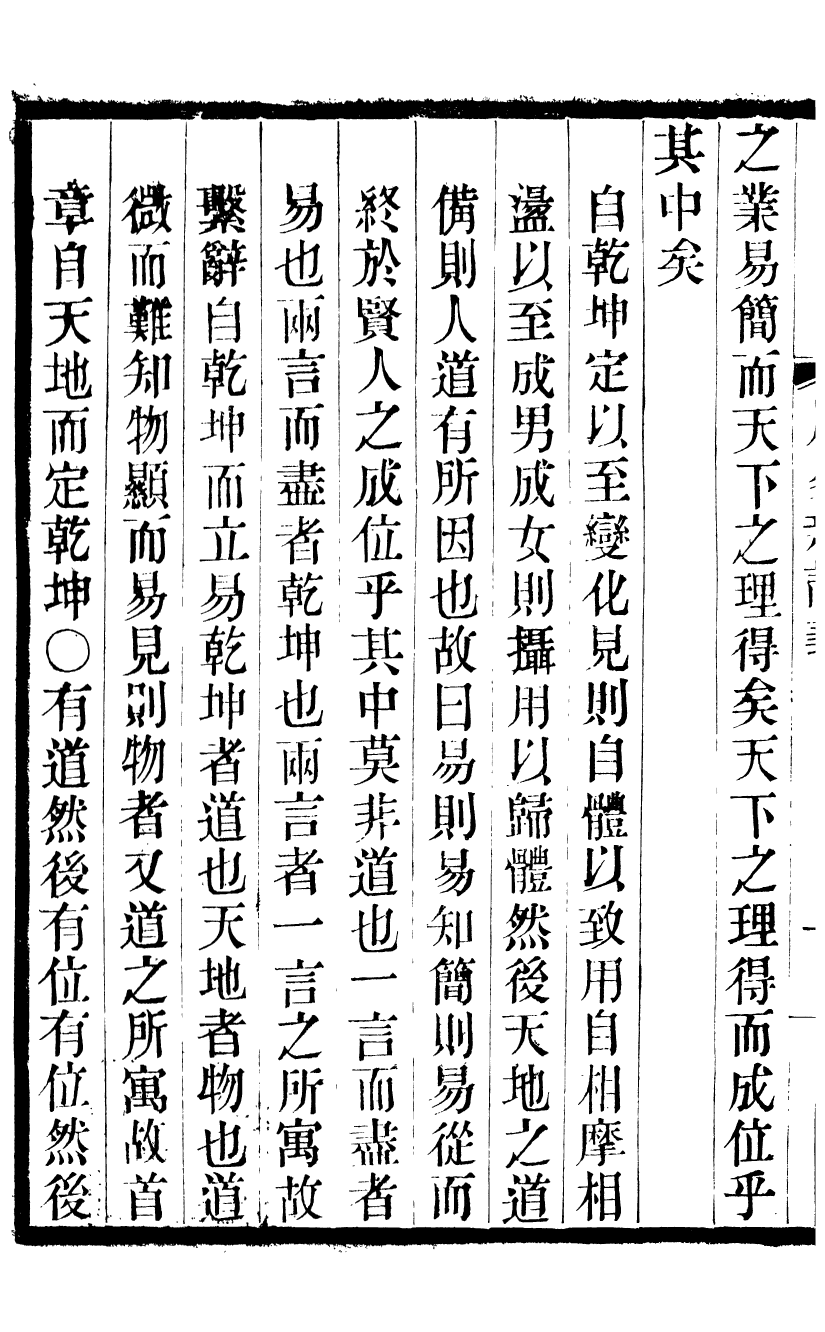 之業易簡而天下之理得矣天下之理得而成位乎
其中矣
自乾坤定以至變化見則自體以致用自相摩相
盪以至成男成女則攝用以歸體然後天地之道
備則人道有所因也故曰易則易知簡則易從而
終於賢人之成位乎其中莫非道也一言而盡者
易也兩言而盡者乾坤也兩言者一言之所寓故
繫辭自乾坤而立易乾坤者道也天地者物也道
微而難知物顯而易見則物者又道之所寓故首
章自天地而定乾坤〇有道然後有位有位然後